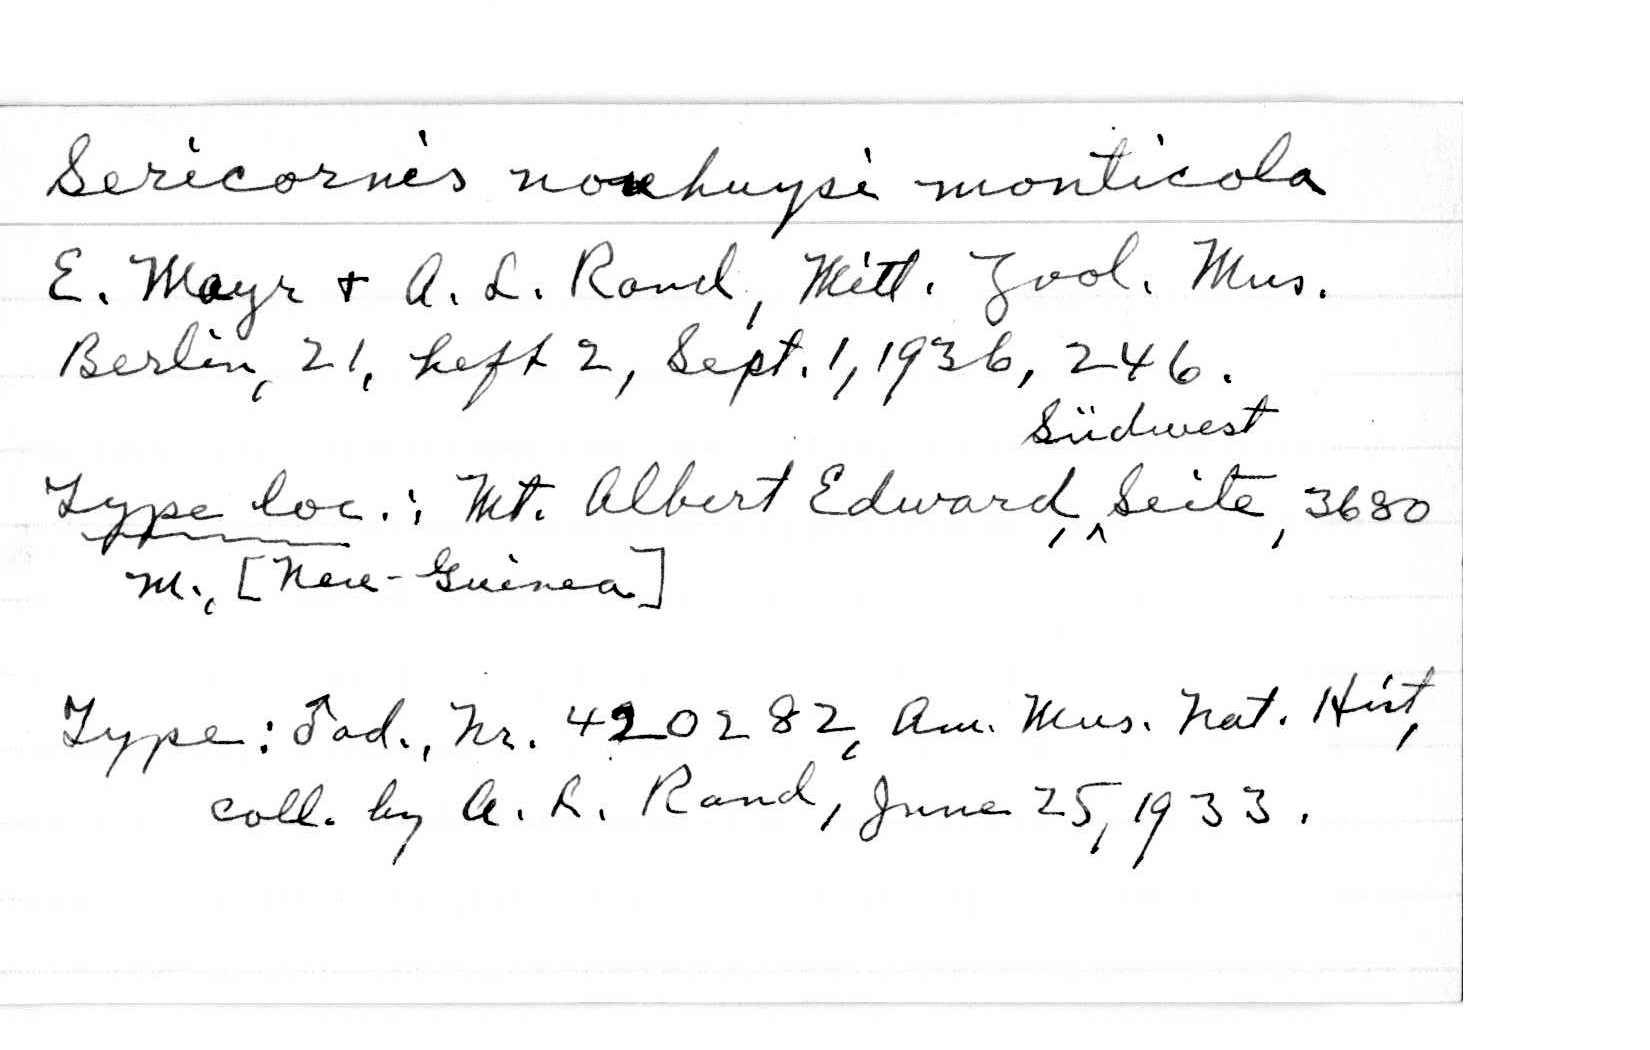 Sericornis nouhuysi monticola
E. Mayr + A. L. Rand, Mitt. Zool. Mus.
Berlin, 21, heft 2, Sept. 1, 1936, 246.
Südwest
Type loc.: Mt. Albert Edward, ^ Seite, 3680
m., [New-Guinea]
Type: ♂ad., Nr. 420282, Am. Mus. Nat. Hist,
coll. by A. L. Rand, June 25, 1933.